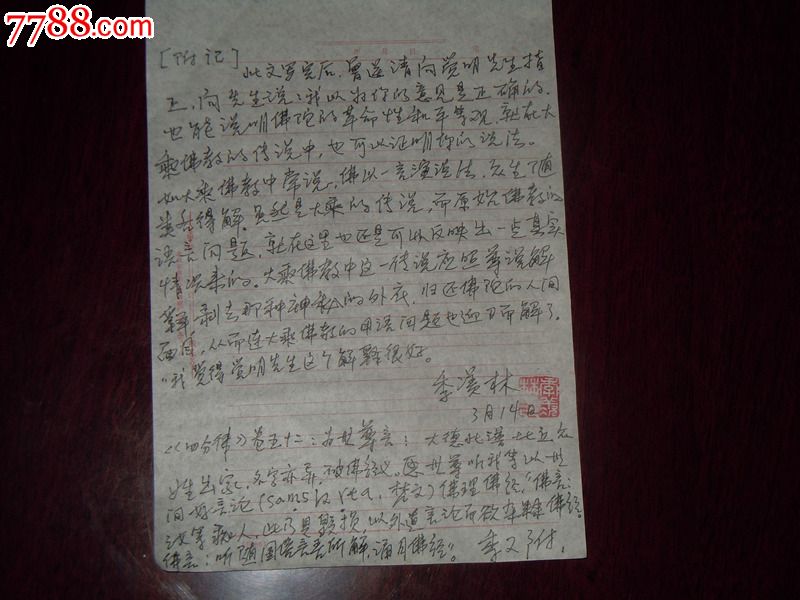 7788.com
[附记]
此文写完后,曾送请向觉明先生指
正,向先生说:我以为你的意见是正确的.
也能说明佛陀的革命性和平等观,就在大
乘佛教的传说中,也可以证明你的说法。
如大乘佛教中常说,佛以一言演说法,众生随
类各得解.虽然是大乘的传说,而原始佛教的
语言问题,就在这里也还是可以反映出一点真实
情况来的。大乘佛教中这一传说应照尊说解
释,剥去那种神秘的外衣,归还佛陀的人间
面目,从而连大乘佛教的用语问题也迎刃而解了.
我觉得觉明先生这个解释很好。
季羡林
3月14日
《四分律》卷五十二:世尊言:大德此诸比丘众
姓出家,名字亦异,破佛经义,愿世尊听我等以世
间好言论(samskrta,梵文)佛理佛经,"佛言:
汝等痴人,此乃是毁损,以外道言论而欲杂佛经.
佛言:听随国俗言音所解,诵习佛经"。 季又附.